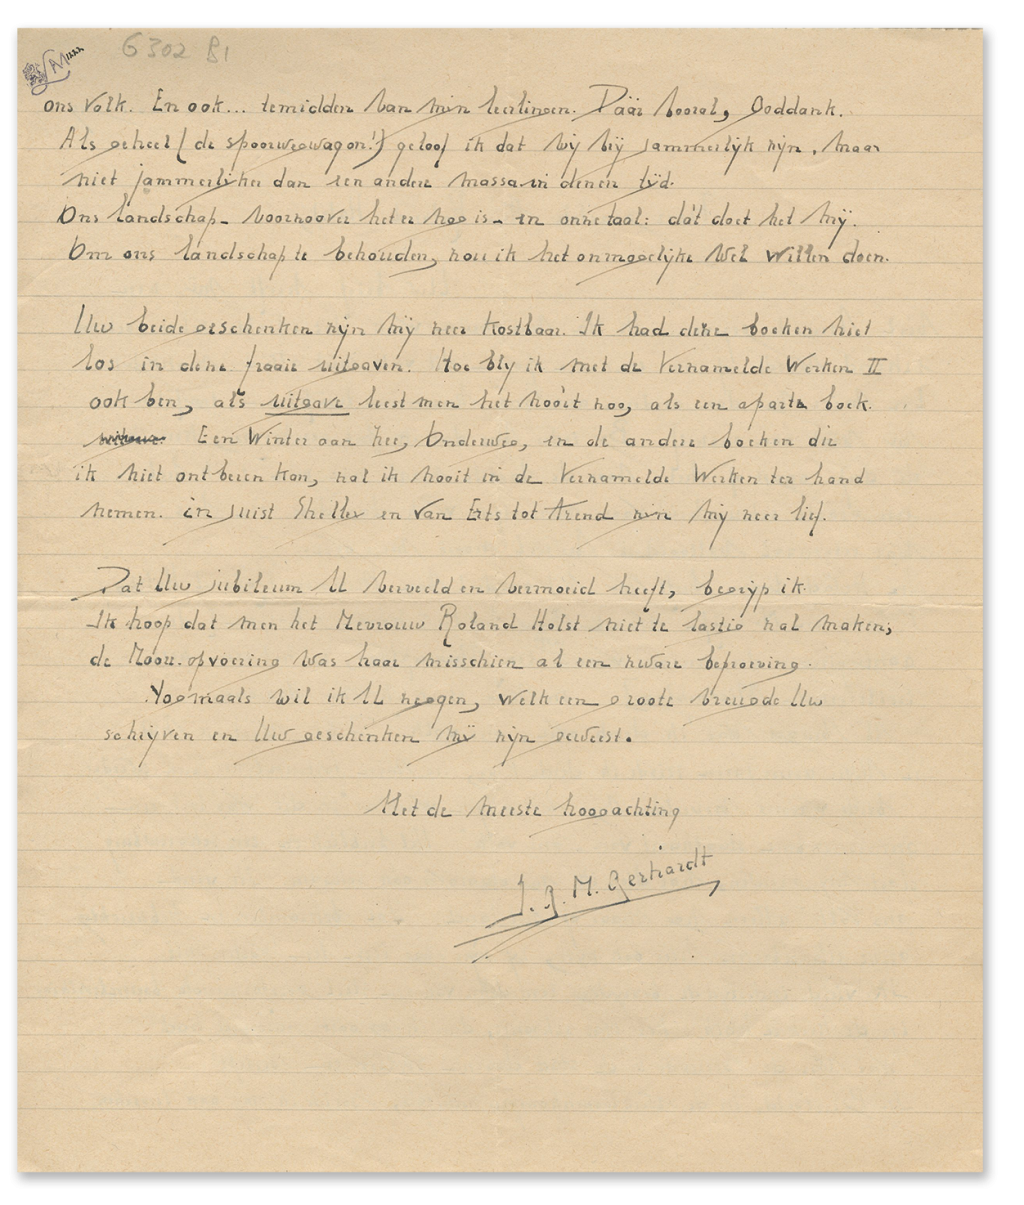 G 302 B1
ons volk. En ook... temidden van mijn leerlingen. Dáár vooral, Goddank.
Als geheel (de spoorwegwagon!) geloof ik dat wij vrij jammerlijk zijn, maar
niet jammerlijker dan een andere massa in dezen tijd.
Ons landschap – voorzoover het er nog is – en onze taal: dát doet het mij.
Om ons landschap te behouden, zou ik het onmogelijke wel willen doen.
Uw beide geschenken zijn mij zeer kostbaar. Ik had deze boeken niet
los in deze fraaie uitgaven. Hoe blij ik met de Verzamelde Werken II
ook ben, als uitgave leest men het nóóit zoo, als een aparte boek.
Een Winter aan Zee, Onderweg, en de andere boeken die
ik niet ontberen kan, zal ik nooit in de Verzamelde Werken ter hand
nemen. en juist Shelley en Van Erts tot Arend zijn mij zeer lief.
Dat Uw jubileum U verveeld en vermoeid heeft, begrijp ik.
Ik hoop dat men het Mevrouw Roland Holst niet te lastig zal maken;
de Moor-opvoering was haar misschien al een zware beproeving.
Nogmaals wil ik U zeggen, welk een groote vreugde Uw
schrijven en Uw geschenken mij zijn geweest.
Met de meeste hoogachting
J. G. M. Gerhardt